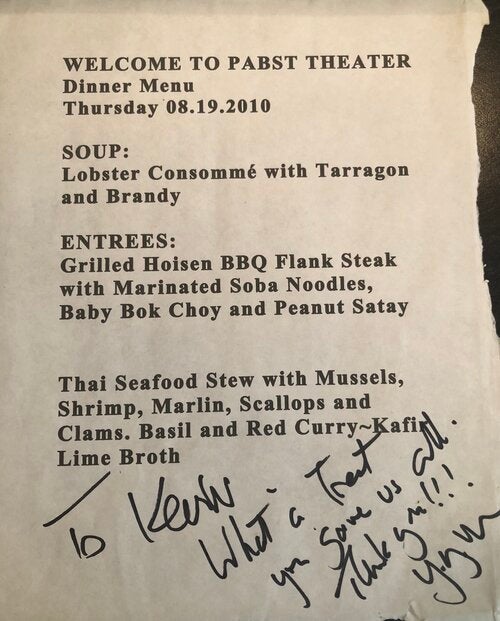 WELCOME TO PABST THEATER
Dinner Menu
Thursday 08.19.2010
SOUP:
Lobster Consommé with Tarragon
and Brandy
ENTREES:
Grilled Hoisen BBQ Flank Steak
with Marinated Soba Noodles,
Baby Bok Choy and Peanut Satay
Thai Seafood Stew with Mussels,
Shrimp, Marlin, Scallops and
Clams. Basil and Red Curry~Kafir
Lime Broth
To Kevin -
What a Treat
you gave us all.
Thank you!!!